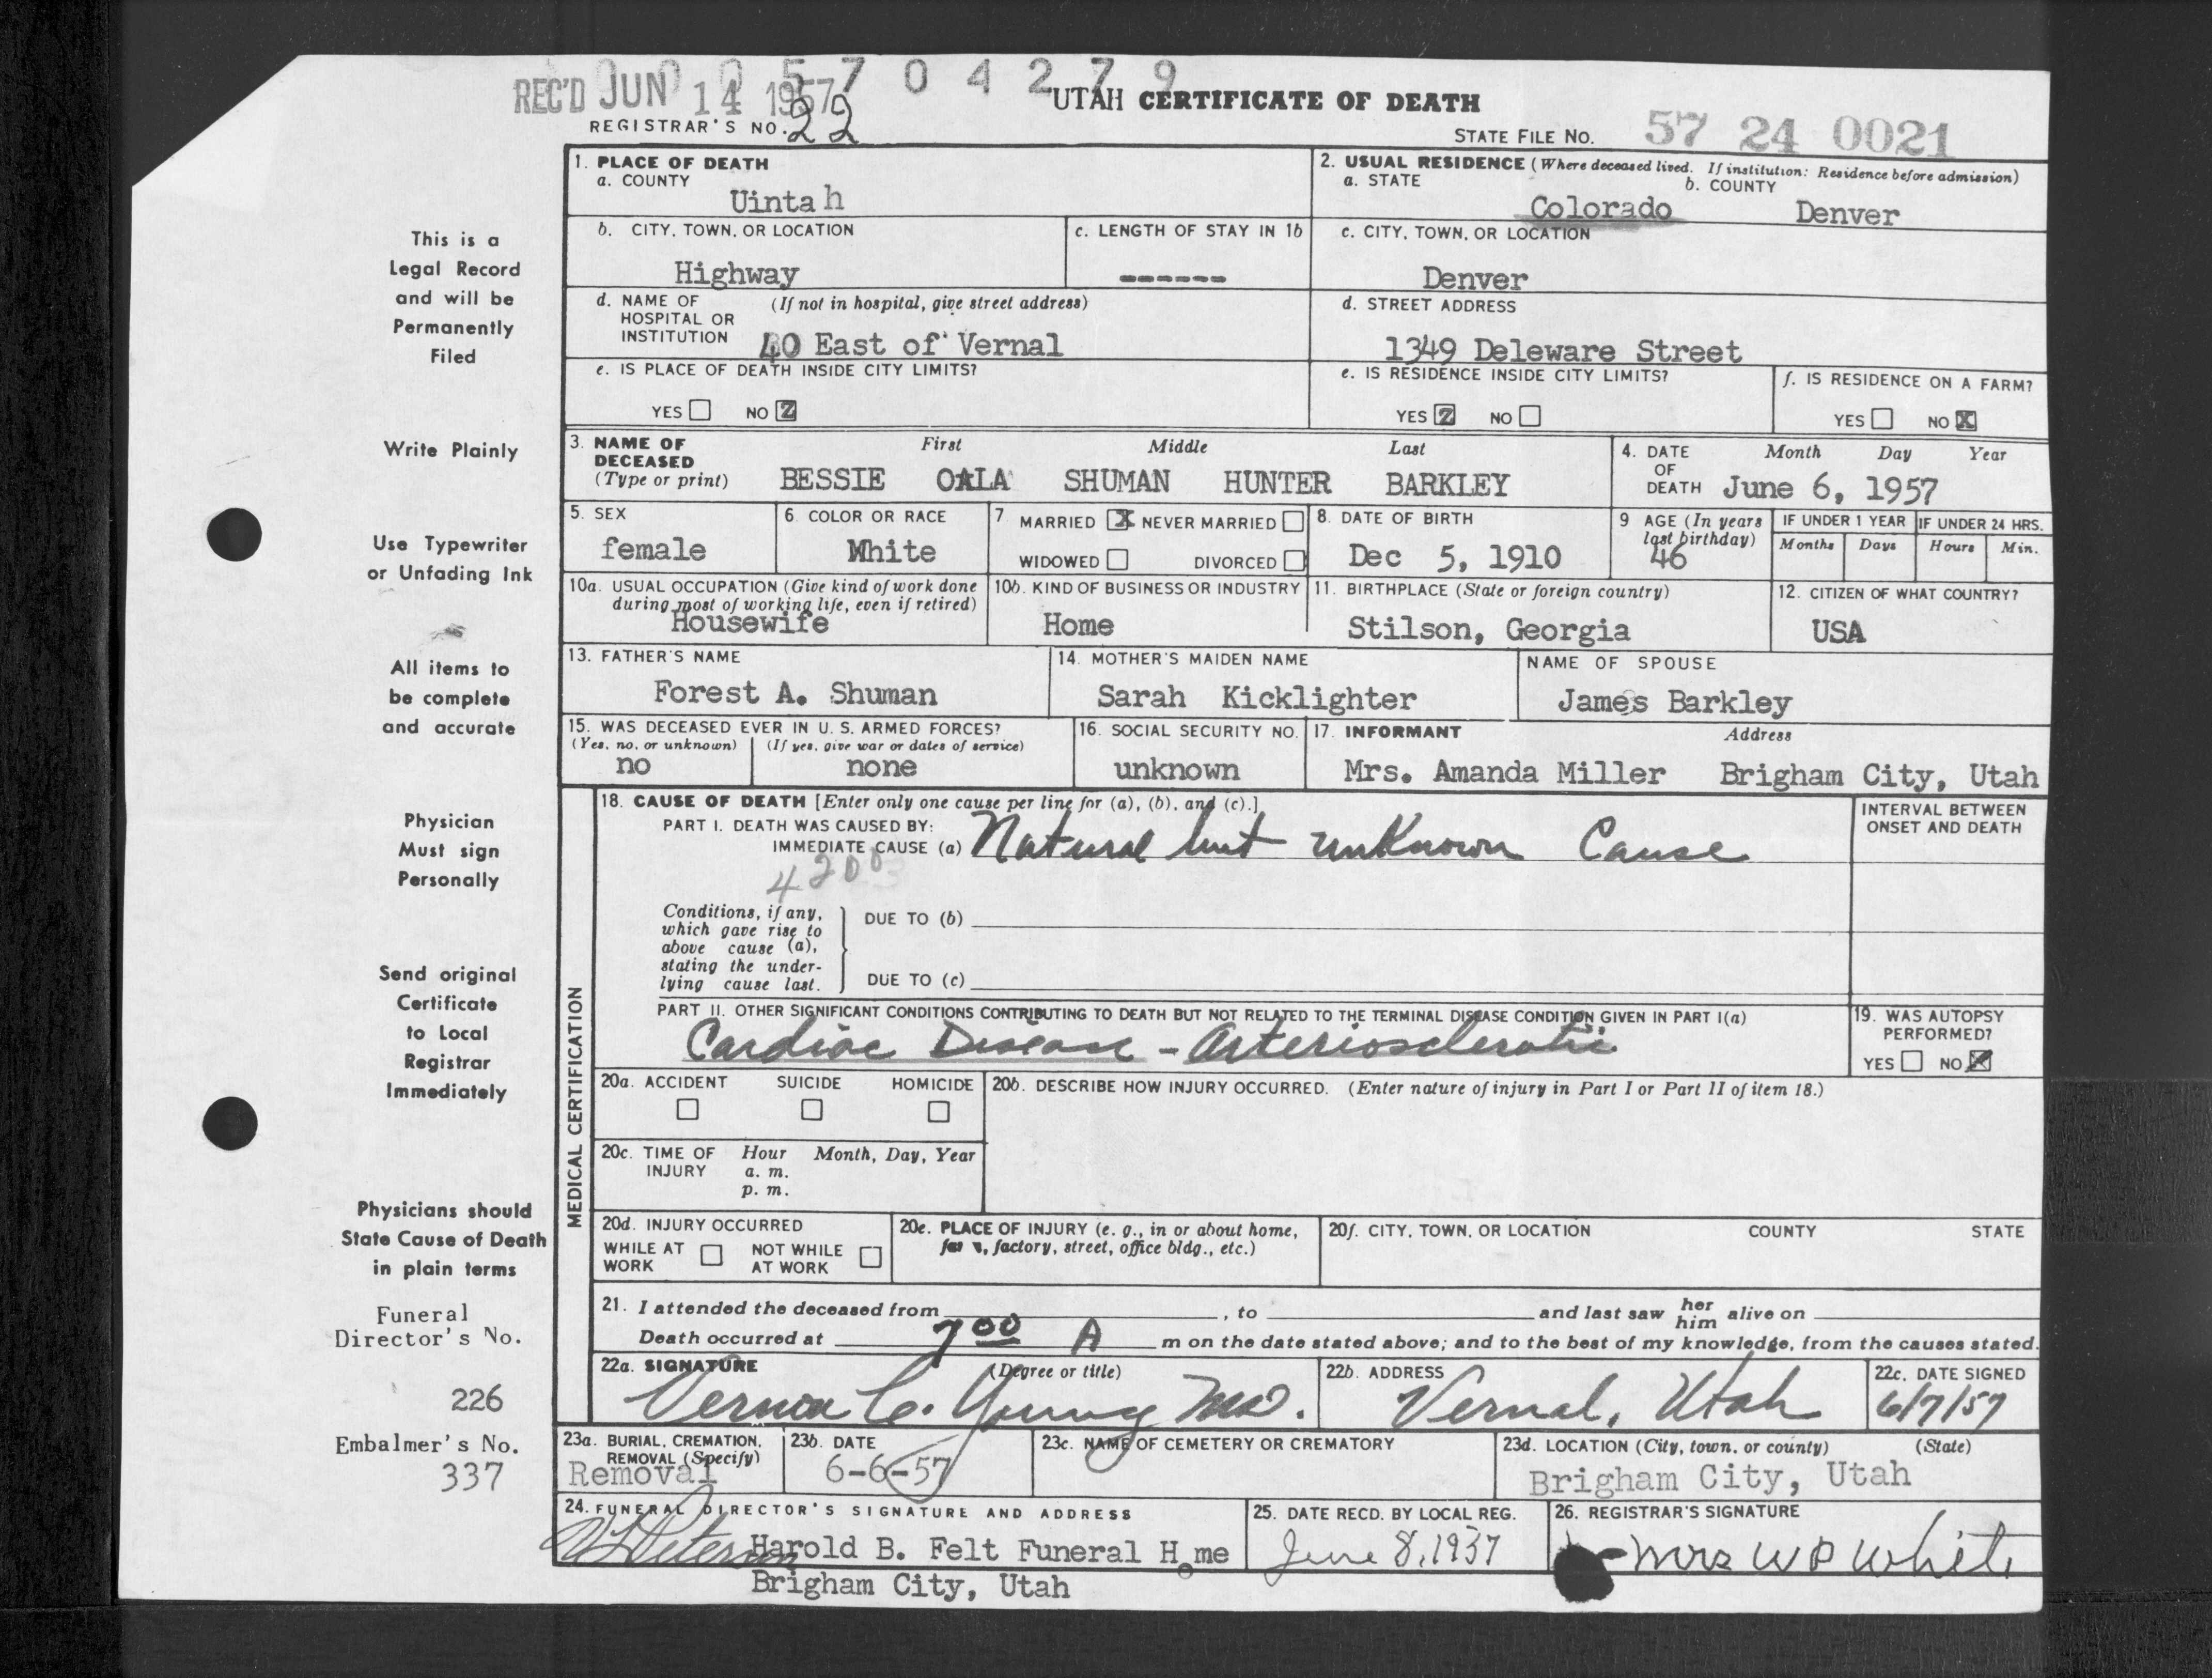 0 0 0 5 7 0 4 2 7 9
REC'D JUN 14 1957
UTAH CERTIFICATE OF DEATH
REGISTRAR'S NO. 22
STATE FILE NO. 57 24 0021
1. PLACE OF DEATH
a. COUNTY
Uintah
2. USUAL RESIDENCE (Where deceased lived. If institution: Residence before admission)
a. STATE b. COUNTY
Colorado Denver
b. CITY, TOWN, OR LOCATION
Highway
c. LENGTH OF STAY IN 1b
------
c. CITY, TOWN, OR LOCATION
Denver
d. NAME OF (If not in hospital, give street address)
HOSPITAL OR
INSTITUTION 40 East of Vernal
d. STREET ADDRESS
1349 Deleware Street
e. IS PLACE OF DEATH INSIDE CITY LIMITS?
YES NO Z
e. IS RESIDENCE INSIDE CITY LIMITS?
YES Z NO
f. IS RESIDENCE ON A FARM?
YES NO X
3. NAME OF First Middle Last
DECEASED
(Type or print) BESSIE OALA SHUMAN HUNTER BARKLEY
4. DATE Month Day Year
OF
DEATH June 6, 1957
5. SEX
female
6. COLOR OR RACE
White
7 MARRIED X NEVER MARRIED
WIDOWED DIVORCED
8. DATE OF BIRTH
Dec 5, 1910
9 AGE (In years
last birthday)
46
IF UNDER 1 YEAR
Months Days
IF UNDER 24 HRS.
Hours Min.
10a. USUAL OCCUPATION (Give kind of work done
during most of working life, even if retired)
Housewife
10b. KIND OF BUSINESS OR INDUSTRY
Home
11. BIRTHPLACE (State or foreign country)
Stilson, Georgia
12. CITIZEN OF WHAT COUNTRY?
USA
13. FATHER'S NAME
Forest A. Shuman
14. MOTHER'S MAIDEN NAME
Sarah Kicklighter
NAME OF SPOUSE
James Barkley
15. WAS DECEASED EVER IN U. S. ARMED FORCES?
(Yes, no, or unknown) (If yes, give war or dates of service)
no none
16. SOCIAL SECURITY NO.
unknown
17. INFORMANT Address
Mrs. Amanda Miller Brigham City, Utah
MEDICAL CERTIFICATION
18. CAUSE OF DEATH [Enter only one cause per line for (a), (b), and (c).]
PART I. DEATH WAS CAUSED BY:
IMMEDIATE CAUSE (a) Natural but unknown Cause
4200
INTERVAL BETWEEN
ONSET AND DEATH
Conditions, if any,
which gave rise to
above cause (a),
stating the under-
lying cause last.
DUE TO (b)
DUE TO (c)
PART II. OTHER SIGNIFICANT CONDITIONS CONTRIBUTING TO DEATH BUT NOT RELATED TO THE TERMINAL DISEASE CONDITION GIVEN IN PART I(a)
Cardiac Disease - Arteriosclerotic
19. WAS AUTOPSY
PERFORMED?
YES NO X
20a. ACCIDENT SUICIDE HOMICIDE
20b. DESCRIBE HOW INJURY OCCURRED. (Enter nature of injury in Part I or Part II of item 18.)
20c. TIME OF Hour Month, Day, Year
INJURY a. m.
p. m.
20d. INJURY OCCURRED
WHILE AT NOT WHILE
WORK AT WORK
20e. PLACE OF INJURY (e. g., in or about home,
farm, factory, street, office bldg., etc.)
20f. CITY, TOWN, OR LOCATION COUNTY STATE
21. I attended the deceased from , to and last saw her him alive on
Death occurred at 7 00 A m on the date stated above; and to the best of my knowledge, from the causes stated.
22a. SIGNATURE (Degree or title)
Vernon C. Young MD.
22b. ADDRESS
Vernal, Utah
22c. DATE SIGNED
6/7/57
23a. BURIAL, CREMATION,
REMOVAL (Specify)
Removal
23b. DATE
6-6-57
23c. NAME OF CEMETERY OR CREMATORY
23d. LOCATION (City, town, or county) (State)
Brigham City, Utah
24. FUNERAL DIRECTOR'S SIGNATURE AND ADDRESS
Peterson Harold B. Felt Funeral Home
Brigham City, Utah
25. DATE RECD. BY LOCAL REG.
June 8, 1937
26. REGISTRAR'S SIGNATURE
Mrs W P White
This is a
Legal Record
and will be
Permanently
Filed
Write Plainly
Use Typewriter
or Unfading Ink
All items to
be complete
and accurate
Physician
Must sign
Personally
Send original
Certificate
to Local
Registrar
Immediately
Physicians should
State Cause of Death
in plain terms
Funeral
Director's No.
226
Embalmer's No.
337